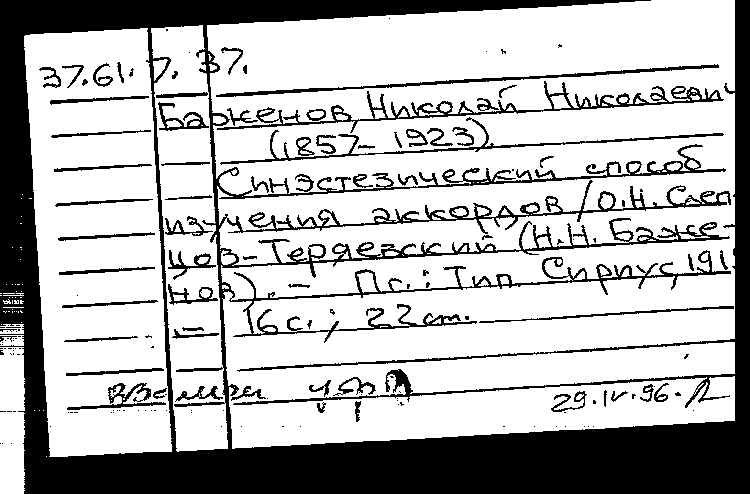 37.61.7.37.
Баженов, Николай Николаевич
(1857-1923).
Синэстезический способ
изучения аккордов / О.Н. Слеп-
цов-Теряевский (Н.Н. Баже-
нов). - Пг.: Тип. Сириус, 191
.- 16 с.; 22 см.
29.IV.96.